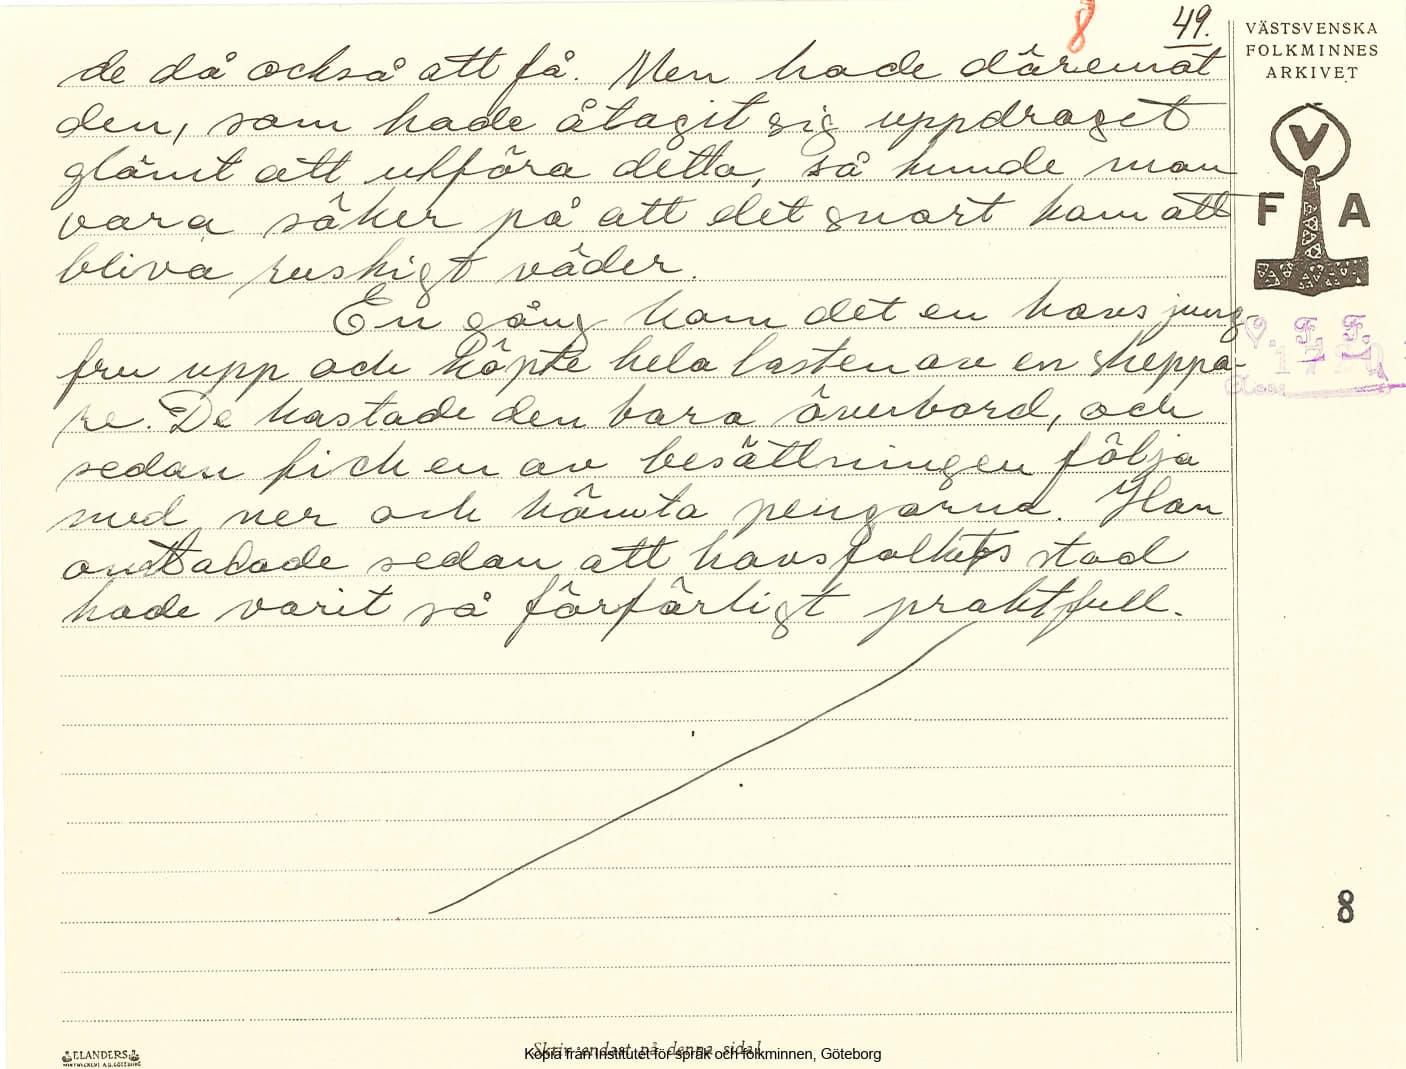 8
49.
VÄSTSVENSKA
FOLKMINNES
ARKIVET
V
F A
de då också att få. Men hade däremot
den, som hade åtagit sig uppdraget
glömt att utföra detta, så kunde man
vara säker på att det snart kom att
bliva ruskigt väder.
En gång kom det en havsjung-
fru upp och köpte hela lasten av en skeppa-
re. De kastade den bara överbord, och
sedan fick en av besättningen följa
med ner och hämta pengarna. Han
omtalade sedan att havsfolkets stad
hade varit så förfärligt praktfull.
V. F. F.
8
ELANDERS
Skriv endast på denna sida!
Kopia från Institutet för språk och folkminnen, Göteborg